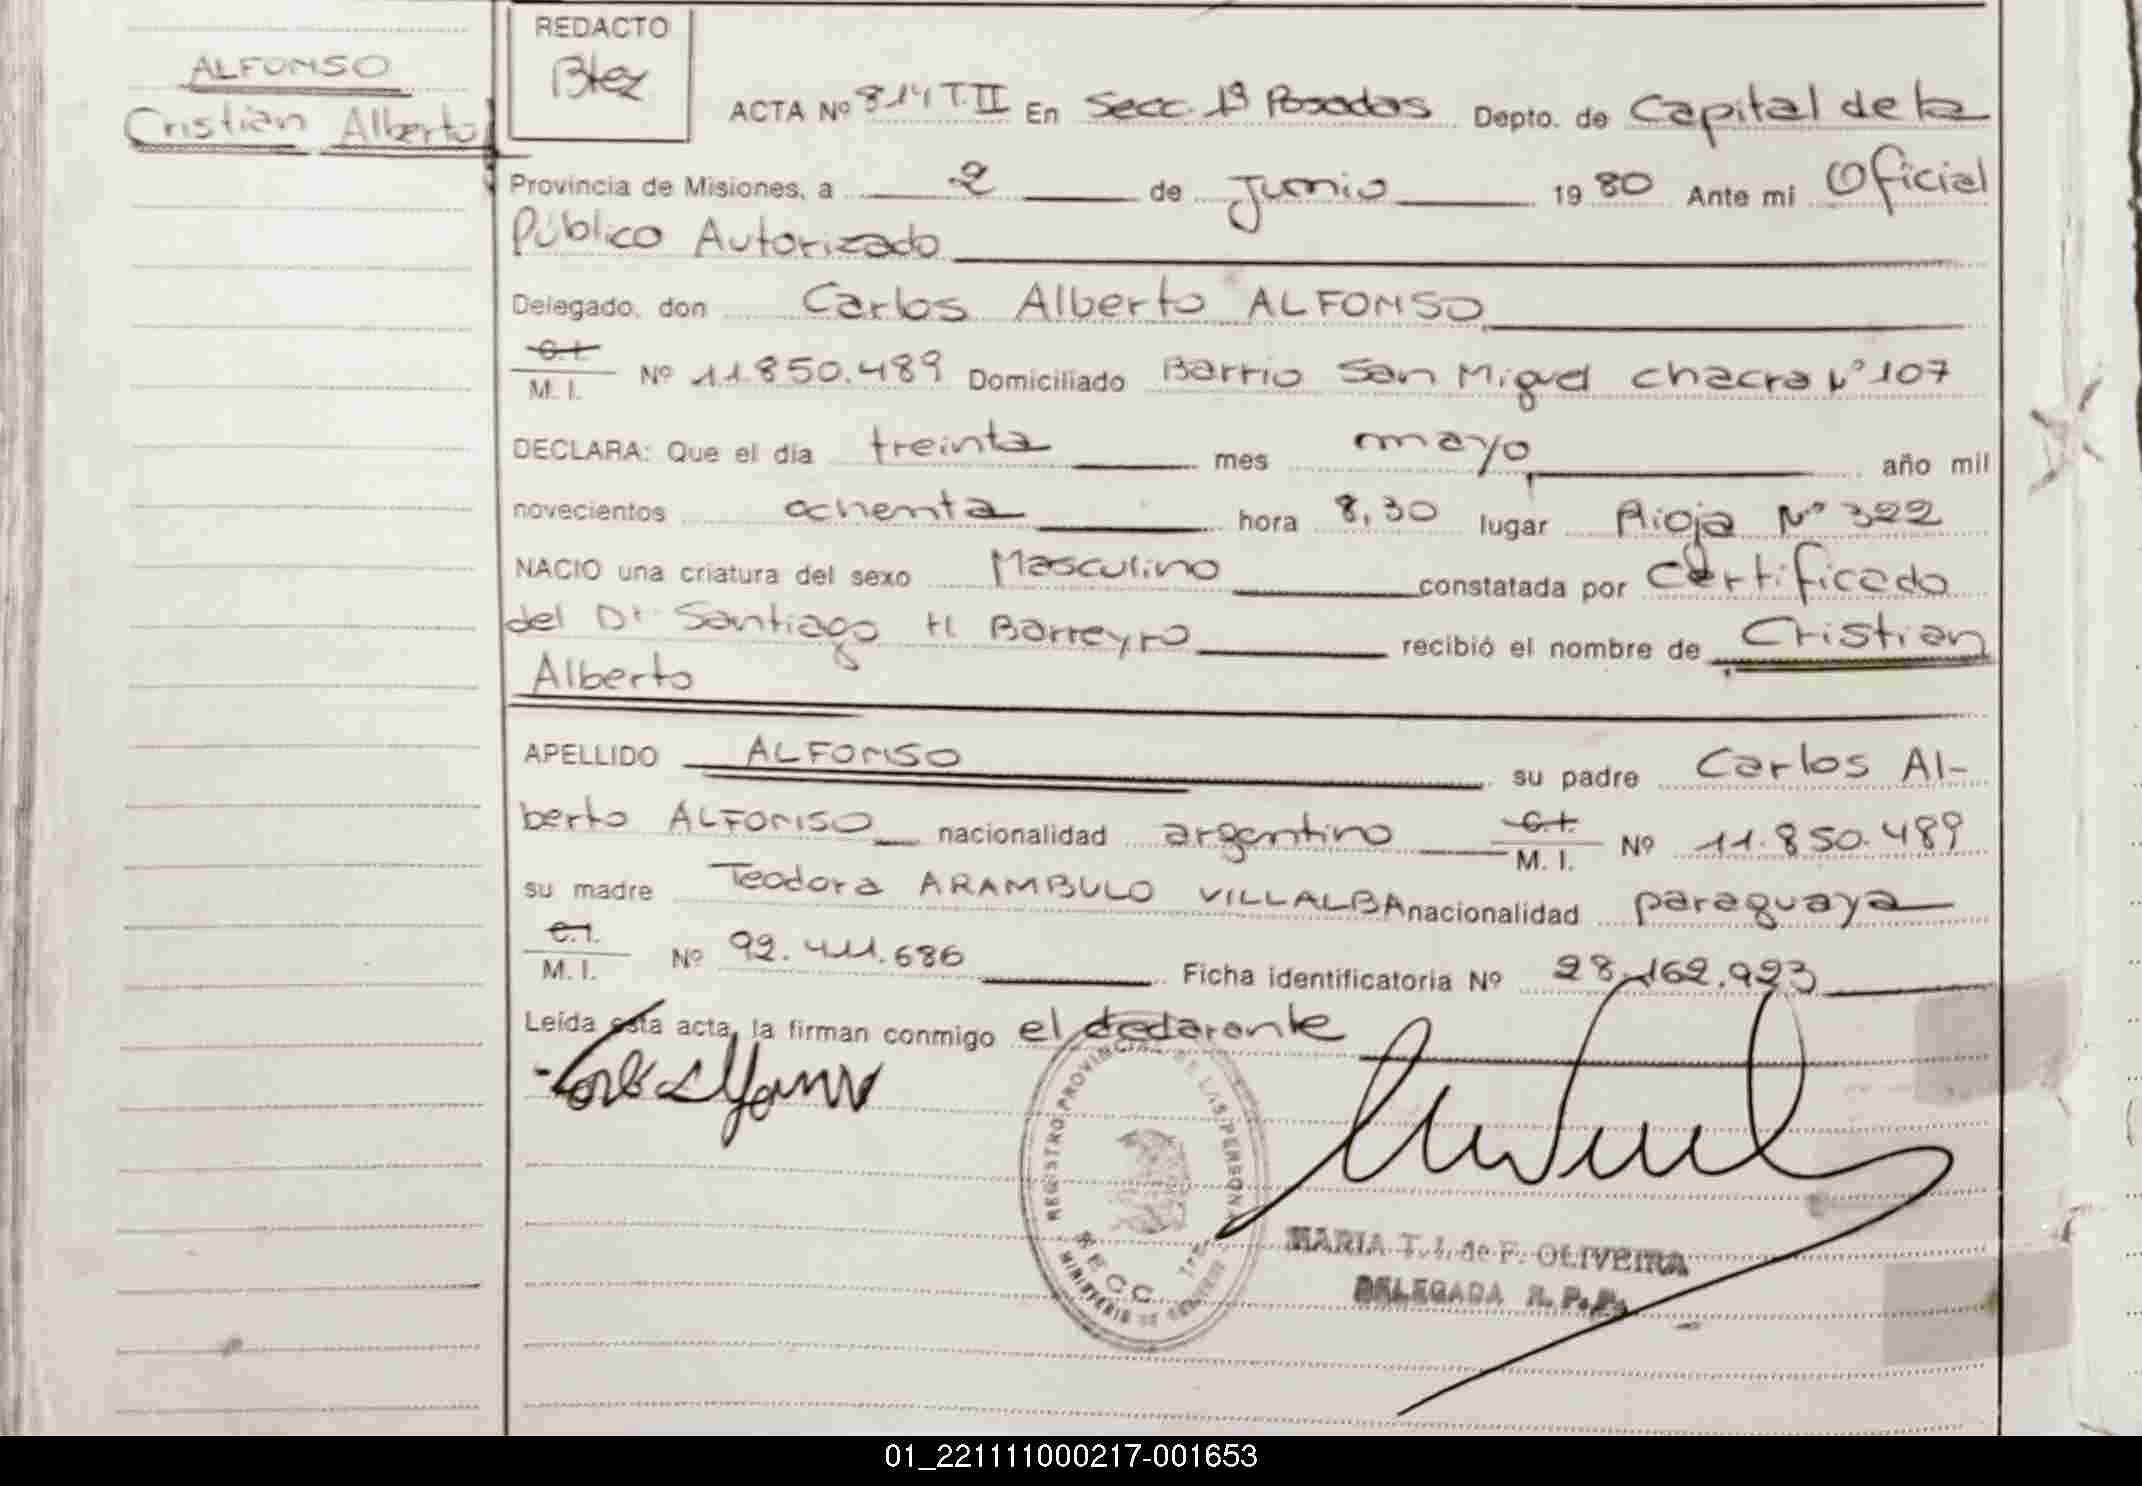 ALFONSO
Cristian Alberto
REDACTO
Btez
ACTA Nº 814 T.II En Secc. 1ª Posadas Depto. de Capital de la
Provincia de Misiones, a 2 de Junio 1980 Ante mi Oficial
Público Autorizado
Delegado, don Carlos Alberto ALFONSO
C.I.
M. I. Nº 11.850.489 Domiciliado Barrio San Miguel chacra Nº 107
DECLARA: Que el día treinta mes mayo año mil
novecientos ochenta hora 8,30 lugar Rioja Nº 322
NACIO una criatura del sexo Masculino constatada por Certificado
del Dr Santiago H Barreyro recibió el nombre de Cristian
Alberto
APELLIDO ALFONSO su padre Carlos Al-
berto ALFONSO nacionalidad argentino C.I.
M. I. Nº 11.850.489
su madre Teodora ARAMBULO VILLALBA nacionalidad paraguaya
C.I.
M. I. Nº 92.411.686 Ficha identificatoria Nº 28.162.923
Leída esta acta, la firman conmigo el declarante
REGISTRO PROVINCIAL DE LAS PERSONAS
SECC 1ra
MINISTERIO DE GOBIERNO
MARIA T. I. de F. OLIVEIRA
DELEGADA R. P. P.
01_221111000217-001653